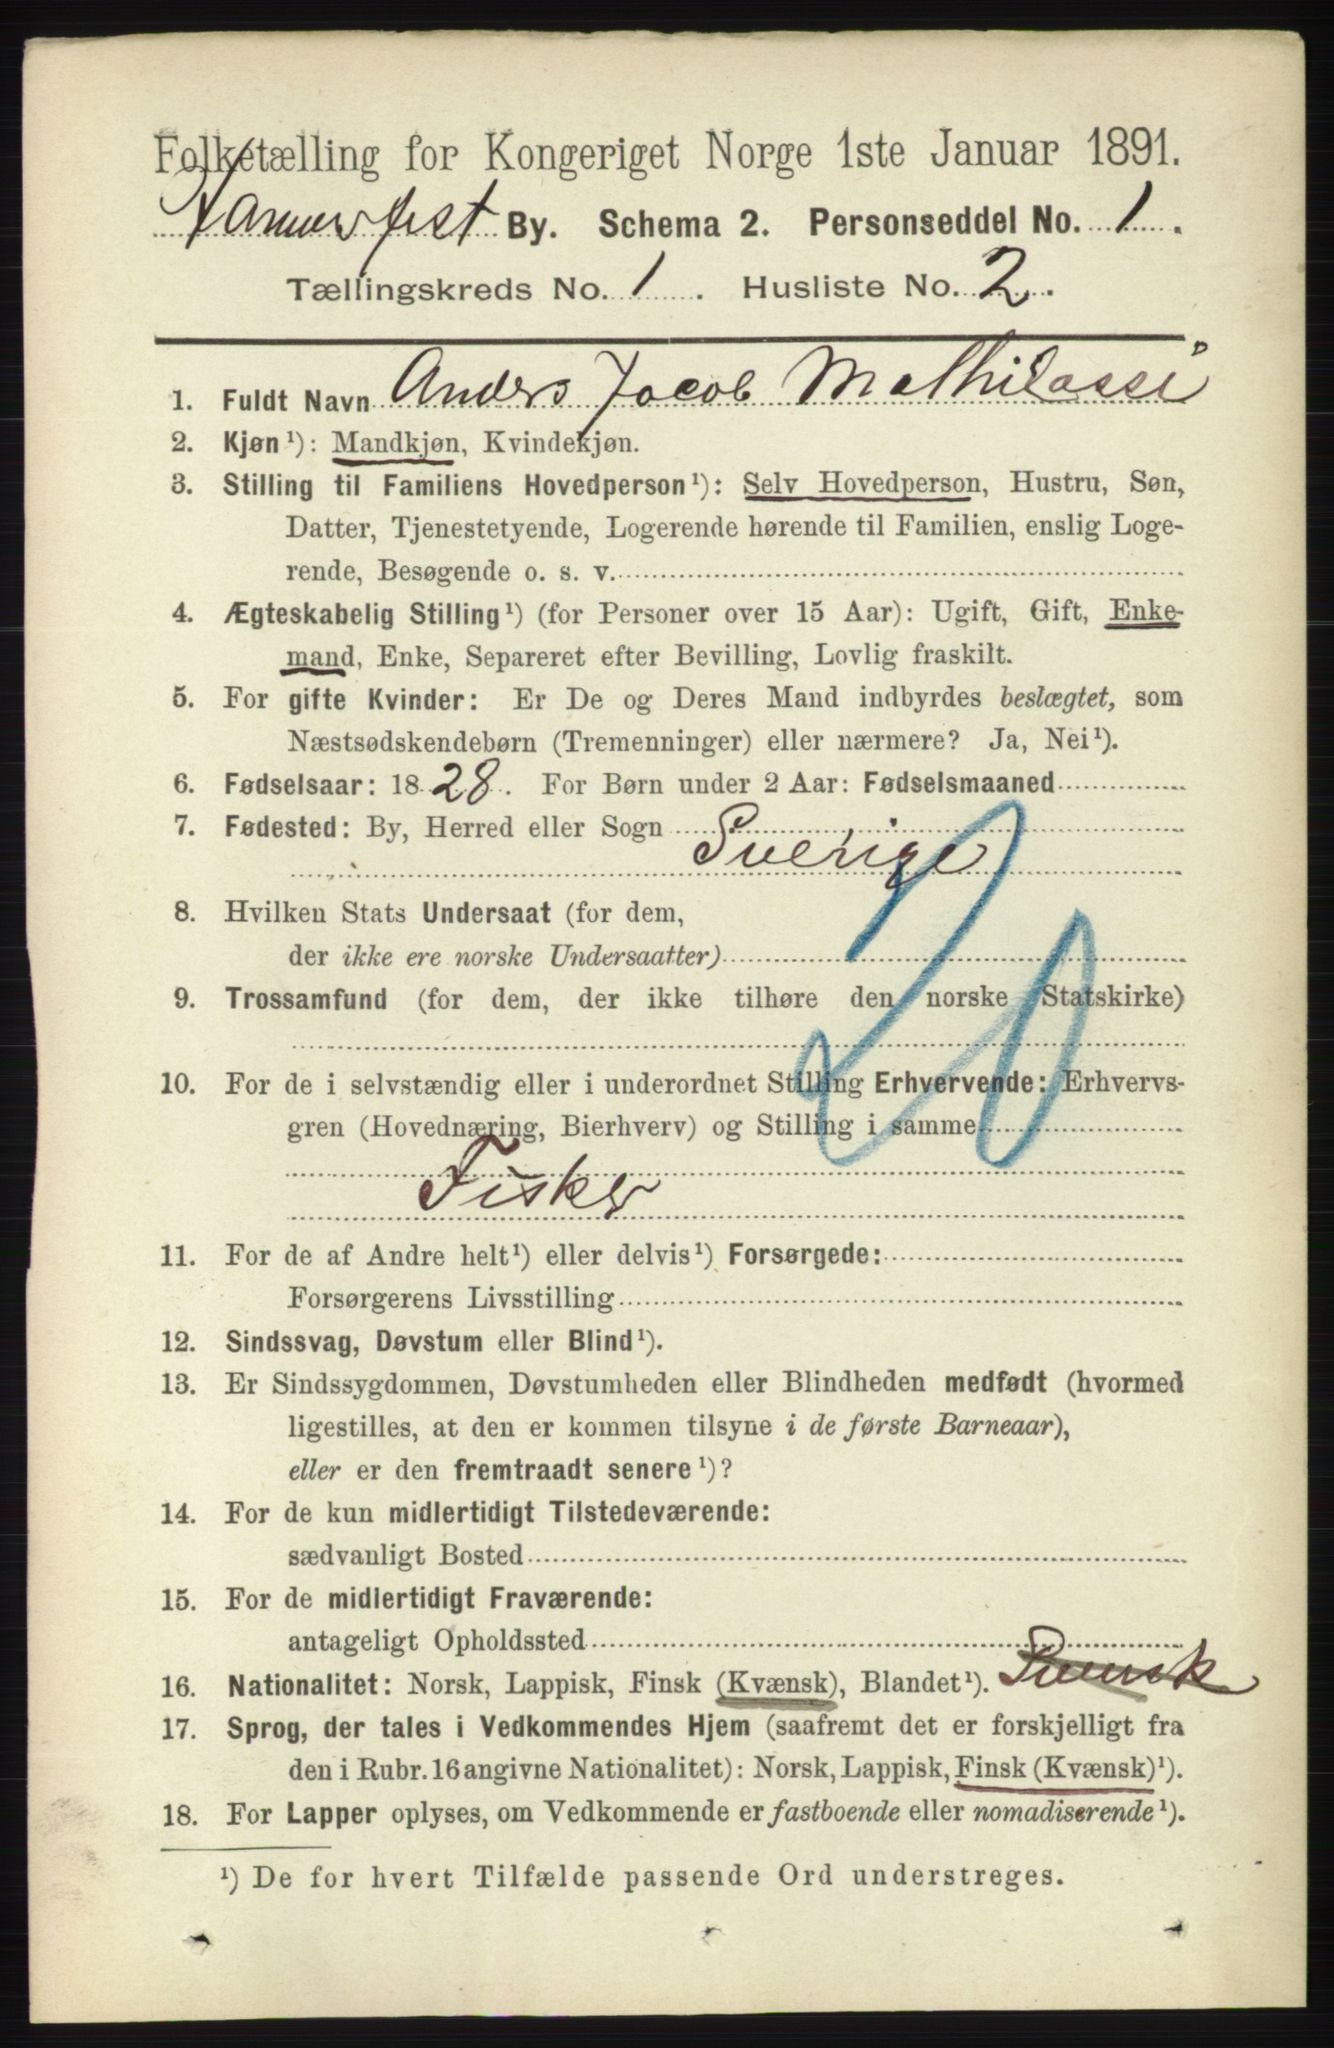 Folketælling for Kongeriget Norge 1ste Januar 1891.
Hammerfest By. Schema 2. Personseddel No. 1.
Tællingskreds No. 1. Husliste No. 2.
1. Fuldt Navn Anders Jacob Mathilassi
2. Kjøn¹): Mandkjøn, Kvindekjøn.
3. Stilling til Familiens Hovedperson¹): Selv Hovedperson, Hustru, Søn,
Datter, Tjenestetyende, Logerende hørende til Familien, enslig Loge-
rende, Besøgende o. s. v.
4. Ægteskabelig Stilling¹) (for Personer over 15 Aar): Ugift, Gift, Enke-
mand, Enke, Separeret efter Bevilling, Lovlig fraskilt.
5. For gifte Kvinder: Er De og Deres Mand indbyrdes beslægtet, som
Næstsødskendebørn (Tremenninger) eller nærmere? Ja, Nei¹).
6. Fødselsaar: 1828. For Børn under 2 Aar: Fødselsmaaned
7. Fødested: By, Herred eller Sogn
Sverige
8. Hvilken Stats Undersaat (for dem,
der ikke ere norske Undersaatter)
20
9. Trossamfund (for dem, der ikke tilhøre den norske Statskirke)
10. For de i selvstændig eller i underordnet Stilling Erhvervende: Erhvervs-
gren (Hovednæring, Bierhverv) og Stilling i samme
Fisker
11. For de af Andre helt¹) eller delvis¹) Forsørgede:
Forsørgerens Livsstilling
12. Sindssvag, Døvstum eller Blind¹).
13. Er Sindssygdommen, Døvstumheden eller Blindheden medfødt (hvormed
ligestilles, at den er kommen tilsyne i de første Barneaar),
eller er den fremtraadt senere¹)?
14. For de kun midlertidigt Tilstedeværende:
sædvanligt Bosted
15. For de midlertidigt Fraværende:
antageligt Opholdssted
16. Nationalitet: Norsk, Lappisk, Finsk (Kvænsk), Blandet¹). Svensk
17. Sprog, der tales i Vedkommendes Hjem (saafremt det er forskjelligt fra
den i Rubr. 16 angivne Nationalitet): Norsk, Lappisk, Finsk (Kvænsk)¹).
18. For Lapper oplyses, om Vedkommende er fastboende eller nomadiserende¹).
¹) De for hvert Tilfælde passende Ord understreges.